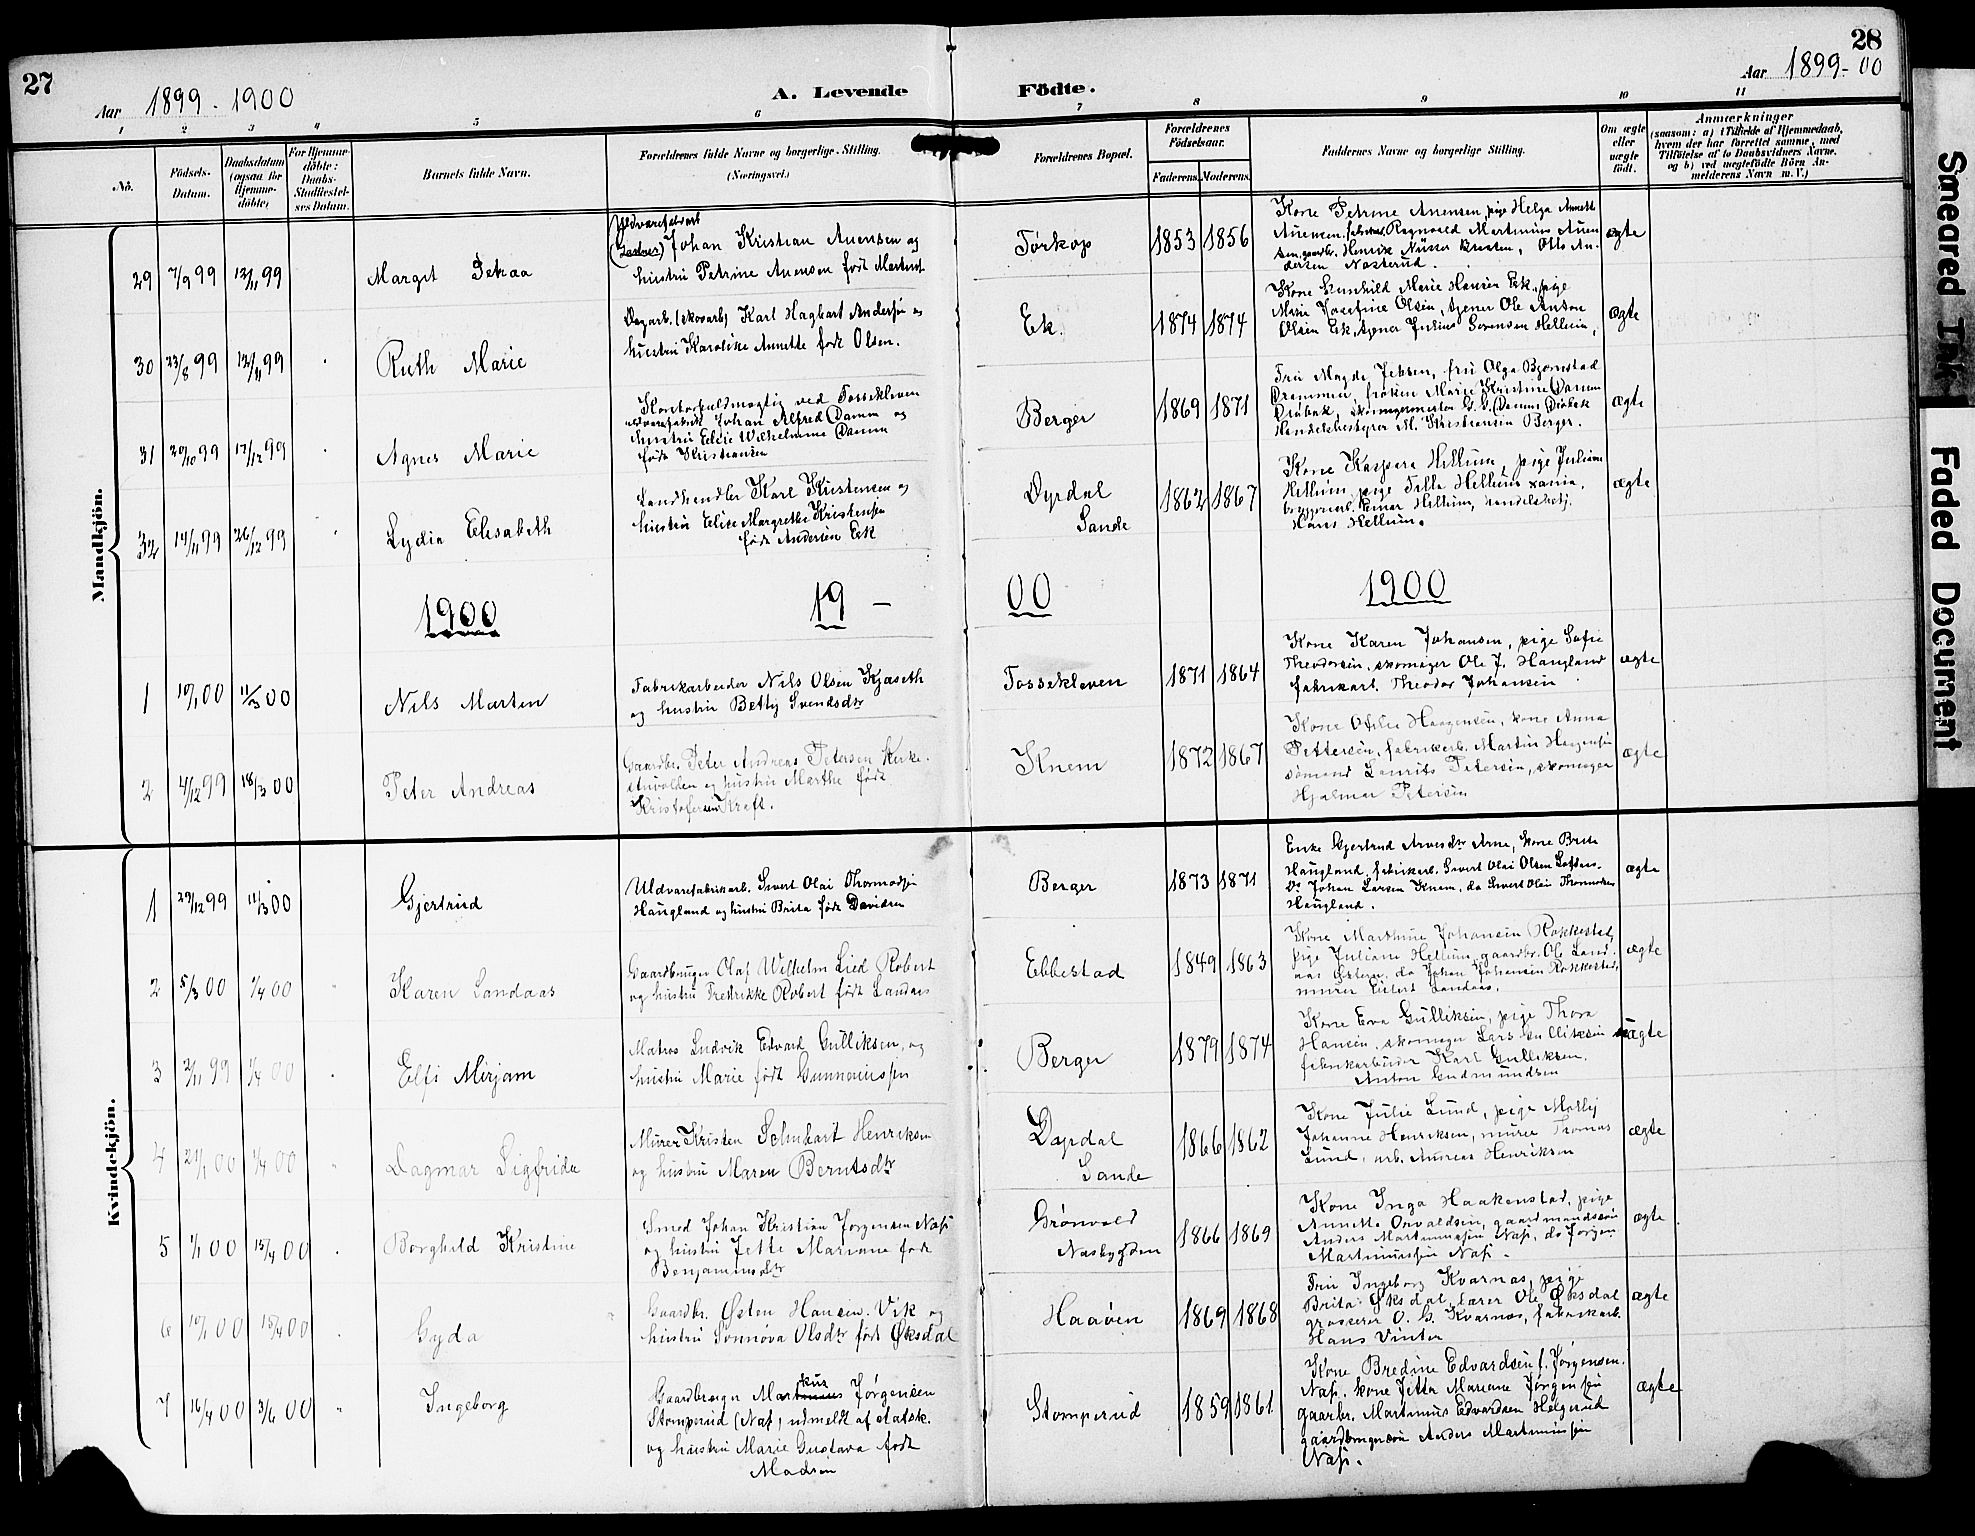 27
28
Aar 1899-1900
A. Levende
Födte.
Aar 1899-00
1 2 3 4 5 6 7 8 9 10 11
No.
Födsels-
Datum.
Daabsdatum
(ogsaa for
Hjemme-
döbte;
For Hjemme-
döbte:
Daabs-
Stadfæstel-
ses Datum.
Barnets fulde Navn.
Forældrenes fulde Navne og borgerlige Stilling.
(Næringsvei.)
Forældrenes Bopæl.
Forældrenes
Födselsaar.
Faderens. Moderens.
Faddernes Navne og borgerlige Stilling.
Om ægte
eller
uægte
födt.
Anmærkninger
(saasom: a) i Tilfælde af Hjemmedaab,
hvem der har forrettet samme, med
Tilföielse af to Daabsvidners Navne,
og b) ved uegtefödte Börn An-
melderens Navn m. V.)
Mandkjön.
29 7/9 99 12/11 99 Margit
Johan Kristian Anensen og
hustru Petrine Anensen født
Tørkop 1853 1856
Kone Petrine Anensen, pige Helga Annette
Anensen, Ragnvald Martinius Anen
sen, Henrik Otto An-
dersen ægte
30 23/8 99 12/11 99 Ruth Marie
Dagarb. (skovarb) Karl Hagbart Andersen og
hustru Karoline Annette født Olsen.
Ek. 1874 1874
Kone Gunhild Marie Hansen Ek, pige
Marie Josefine Olsen, tjener Ole Anton
Olsen Ek, tjener Julius Sørensen Hellum, ægte
31 20/10 99 17/12 99 Agnes Marie
Kontorfuldmægtig ved Fossekleven
Johan Alfred Damm og
hustru Wilhelmine Damm
født Kristiansen
Berger 1869 1871
Fru Magda Jebsen, fru Olga Bjørnstad
Drammen, frøken Marie Kristine Damm
Drøbak, skomagermester Damm Drøbak
Handelsbestyrer M. Kristiansen Berger. ægte
32 14/11 99 26/12 99 Lydia Elisabeth
Landhandler Karl Kristensen og
hustru Elise Margrethe Kristensen
født Andersen Ek
Dyrdal
Sande 1862 1867
Kone Kaspara Hellum, pige Juliane
Hellum, pige Hellum
Einar Hellum, handelsbetj.
Hans Hellum. ægte
1900 19 - 00 1900
1 10/1 00 11/3 00 Nils Martin
Fabrikarbeider Nils Olsen Kjæseth
og hustru Betty Svendsdtr
Fossekleven 1871 1864
Kone Karen Johansen, pige Sofie
Theodorsen, skomager Ole J. Haugland
fabrikarb. Theodor Johansen ægte
2 4/12 99 18/3 00 Peter Andreas
Gaardbr. Peter Andreas Petersen Kirke-
og hustru Marthe født
Kristofersen Kraft.
Knem 1872 1867
Kone Otilie Haagensen, kone Anna
Pettersen, fabrikarb. Martin Haagensen
sømand Laurits Petersen, skomager
Hjalmar Petersen ægte
Kvindekjön.
1 29/12 99 11/3 00 Gjertrud
Uldvarefabrikarb. Sivert Olai Thormodsen
Haugland og hustru Brita født Davidsen
Berger 1873 1871
Enke Gjertrud Arnesdtr Arne, kone Brita
Haugland, fabrikarb. Sivert Olai Olsen
Do Johan Larsen Knem, do Sivert Olai Thormodsen
Haugland. ægte
2 5/3 00 1/4 00 Karen Landaas
Gaardbruger Olaf Wilhelm Lied Robert
og hustru Fredrikke Robert født Landaas
Ebbestad 1849 1863
Kone Marthine Johansen Rokkestad,
pige Juliane Hellum, gaardbr. Ole Land-
aas do Johan Johansen Rokkestad,
murer Landaas. ægte
3 2/11 99 1/4 00 Elfi Mirjam
Matros Ludvik Edvard Gulliksen, og
hustru Marie født Gunneriussen
Berger 1879 1874
Kone Eva Gulliksen, pige Thora
Hansen, skomager Lars Gulliksen
fabrikarbeider Karl Gulliksen,
Anton Gudmundsen ægte
4 21/1 00 1/4 00 Dagmar Sigfrida
Murer Kristen Schubart Henriksen
og hustru Maren Berntsdtr
Dyrdal
Sande 1866 1862
Kone Julie Lund, pige Molly
Johanne Henriksen, murer Thomas
Lund, arb. Andreas Henriksen ægte
5 1/1 00 15/4 00 Borghild Kristine
Smed Johan Kristian Jørgensen Næs
og hustru Jette Mariane født
Benjaminsdtr
Grønvold
Nesbygden 1866 1869
Kone Inga Haakenstad, pige
Annette Osvaldsen, gaardmandssøn
Anders Martinussen Næs, do Jørgen
Martinussen Næs. ægte
6 10/1 00 15/4 00 Gyda
Gaardbr. Østen Hansen Vik og
hustru Sønnøva Olsdtr født Øksdal
Haaøen 1869 1868
Fru Ingeborg Kvarnæs, pige
Brita Øksdal, lærer Ole Øksdal
grosserer O. G. Kvarnæs, fabrikarb.
Hans Vinter ægte
7 16/4 00 3/6 00 Ingeborg
Gaardbruger Markus Jørgensen
Stomperud (Næs) udmeldt af statsk.
og hustru Marie Gustava født
Madsen
Stomperud 1859 1861
Kone Bredine Edvardsen f. Jørgensen
Næs, kone Jitta Mariane Jørgensen
gaardbr. Martinius Edvardsen Helgerud
gaardbrugersøn Anders Martinussen
Næs. ægte
Smeared Ink
Faded Document